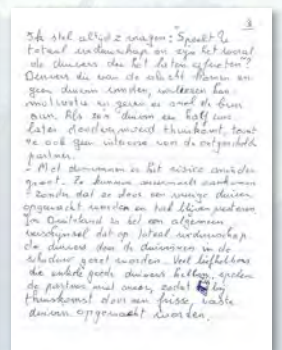 3
Ik stel altijd 2 vragen: Speelt U
totaal weduwschap en zijn het vooral
de duivers die het laten afweten?
Duivers die van de vlucht komen en
geen duivin vinden, verliezen hun
motivatie en geven er snel de brui
aan. Als zo'n duivin een half uur
later doodvermoeid thuiskomt, toont
ze ook geen interesse in de
partner.
- Met duivinnen is het risico minder
groot. Ze kunnen meermaals aankomen
zonder dat ze door een jonge duiver
opgewacht worden en toch blijven presteren
In Duitsland is het een algemeen
verschijnsel dat op totaal weduwschap
de duivers door de duivinnen in de
schaduw gezet worden. Veel liefhebbers
die enkele goede duivers hebben, spelen
de partner niet mee, zodat bij
thuiskomst door een frisse, vaste
duivin opgewacht worden.